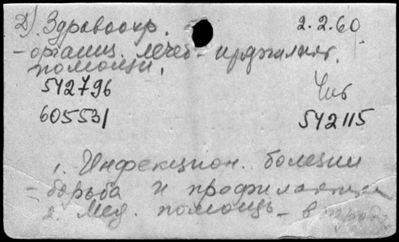 2) Здравоохр. 2.2.60
- организ. лечеб-
помощи.
542796 Чив
605531 542115
1. Инфекцион. болезни
- борьба и профилактика
2. Мед. помощь - в